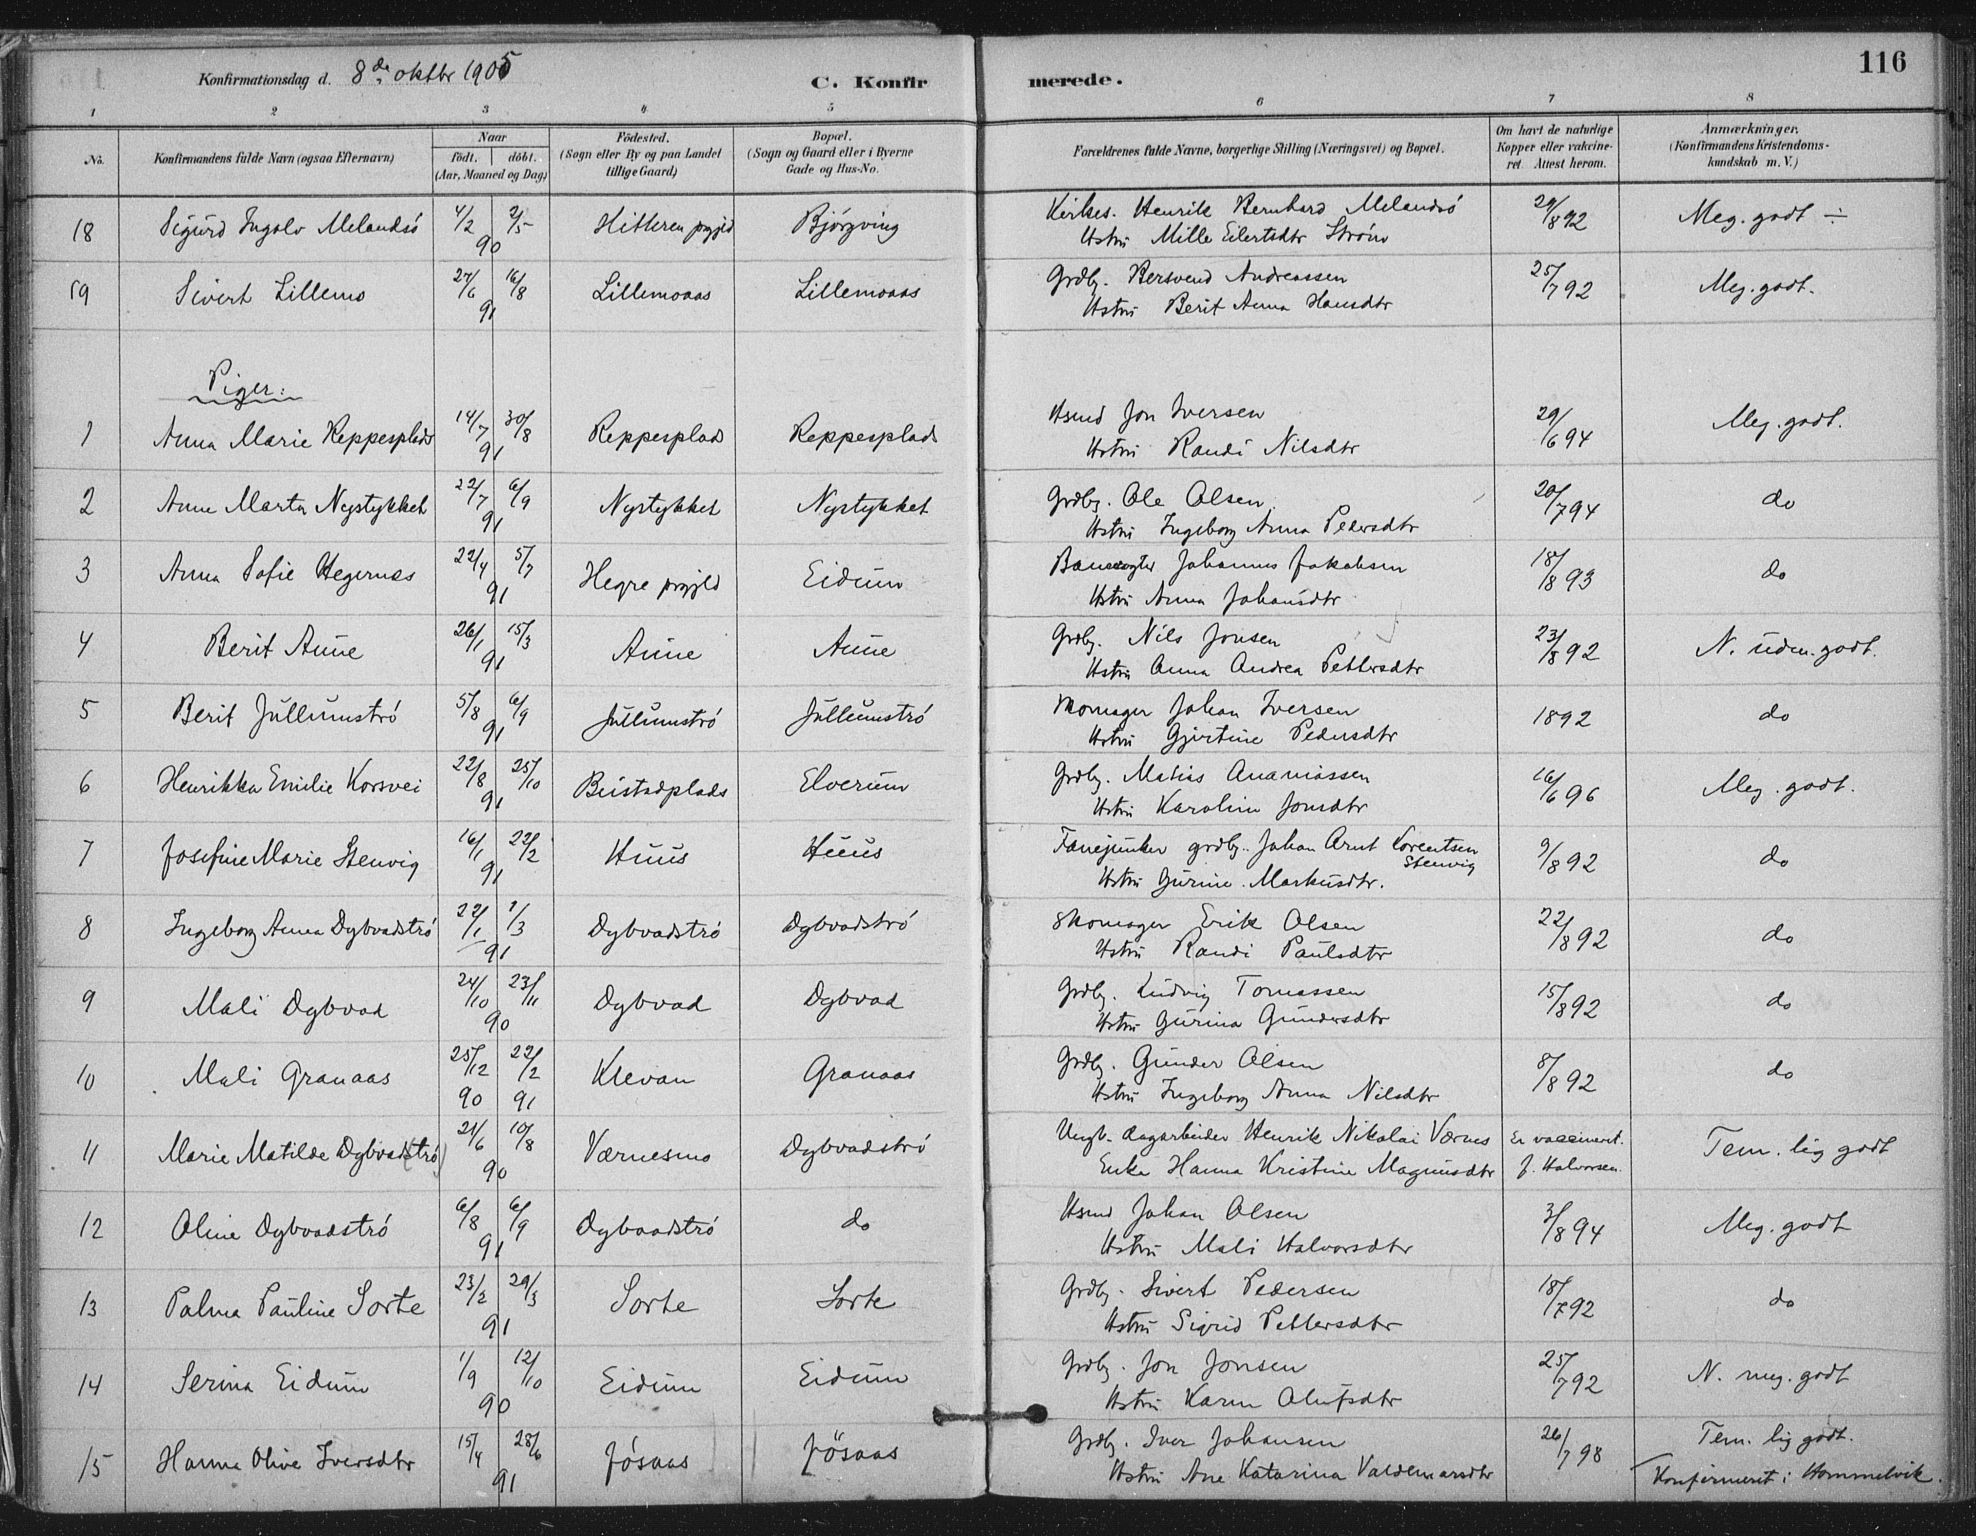 Konfirmationsdag d. 8de oktbr 1905 C. Konfirmerede. 116
1 2 3 4 5 6 7 8
No. Konfirmandens fulde Navn (ogsaa Efternavn) Naar födt. döbt. (Aar, Maaned og Dag) Födested. (Sogn eller By og paa Landet tillige Gaard) Bopæl. (Sogn og Gaard eller i Byerne Gade og Hus-No. Forældrenes fulde Navne, borgerlige Stilling (Næringsvei) og Bopæl. Om havt de naturlige Kopper eller vakcineret. Attest herom. Anmærkninger. (Konfirmandens Kristendomskundskab m. V.)
18 Sigurd Ingolv Melandsö 4/2 2/5 90 Hitteren prgjld Bjørgving Kirkes. Henrik Bernhard Melandsö 29/8 92 Meg. godt ÷
Hstru Mille Eilertsdtr Ström
19 Sivert Lillemo 27/6 16/8 91 Lillemoaas Lillemoaas Grdbg. Bersvend Andreassen 25/7 92 Meg. godt.
Hstru Berit Anna Hansdtr
Piger:
1 Anna Marie Reppesplads 14/7 30/8 91 Reppesplads Reppesplads Hsmd Jon Iversen 29/6 94 Meg. godt.
Hstru Randi Nilsdtr
2 Anne Marta Nystykket 22/7 6/9 91 Nystykket Nystykket Grdbg. Ole Olsen 20/7 94 do
Hstru Ingeborg Anna Pedersdtr
3 Anna Sofie Hegernæs 22/4 5/7 91 Hegre prgjld Eidum Banevogter Johannes Jakobsen 18/8 93 do
Hstru Anna Johansdtr
4 Berit Aune 26/1 15/3 91 Aune Aune Grdbg. Nils Jonsen 23/8 92 N. udm. godt.
Hstru Anna Andrea Pettersdtr
5 Berit Jullumströ 5/8 6/9 91 Jullumströ Jullumströ Skomager Johan Iversen 1892 do
Hstru Gjertine Pedersdtr
6 Henrikka Emilie Korsvei 22/8 25/10 91 Bustadplads Elverum Grdbg. Matias Ananiassen 16/6 96 Meg. godt.
Hstru Karoline Jonsdtr
7 Josefine Marie Stenvig 16/1 22/2 91 Huus Huus Fanejunker grdbg. Johan Arnt Lorentsen Stenvig 9/8 92 do
Hstru Gurine Markusdtr.
8 Ingeborg Anna Dybvadströ 22/1 1/3 91 Dybvadströ Dybvadströ Skomager Erik Olsen 22/8 92 do
Hstru Randi Paulsdtr
9 Mali Dybvad 24/10 23/11 90 Dybvad Dybvad Grdbg. Ludvig Tomassen 15/8 92 do
Hstru Gurina Gundersdtr
10 Mali Granaas 25/12 90 22/2 91 Klevan Granaas Grdbg. Gunder Olsen 8/8 92 do
Hstru Ingeborg Anna Nilsdtr
11 Marie Matilde Dybvad(strö) 21/6 10/8 90 Værnesmo Dybvadströ Ungk. dagarbeider Henrik Nikolai Værnes Er vaccineret. Tem. lig godt
Enke Hanna Kristine Magnusdtr J. Halvorsen.
12 Oline Dybvadströ 6/8 6/9 91 Dybvadströ do Hsmd Johan Olsen 3/8 94 Meg. godt
Hstru Mali Halvorsdtr
13 Palma Pauline Sorte 23/2 29/3 91 Sorte Sorte Grdbg. Sivert Pedersen 18/7 92 do
Hstru Sigrid Pettersdtr
14 Serina Eidum 1/9 12/10 90 Eidum Eidum Grdbg. Jon Jonsen 25/7 92 N. meg. godt
Hstru Karen Olufsdtr
15 Hanna Olive Iversdtr 15/4 28/6 91 Jösaas Jösaas Grdbg. Iver Johansen 26/7 98 Tem. lig godt.
Hstru Ane Katarina Valdemarsdtr Konfirmeret i Hommelvik.